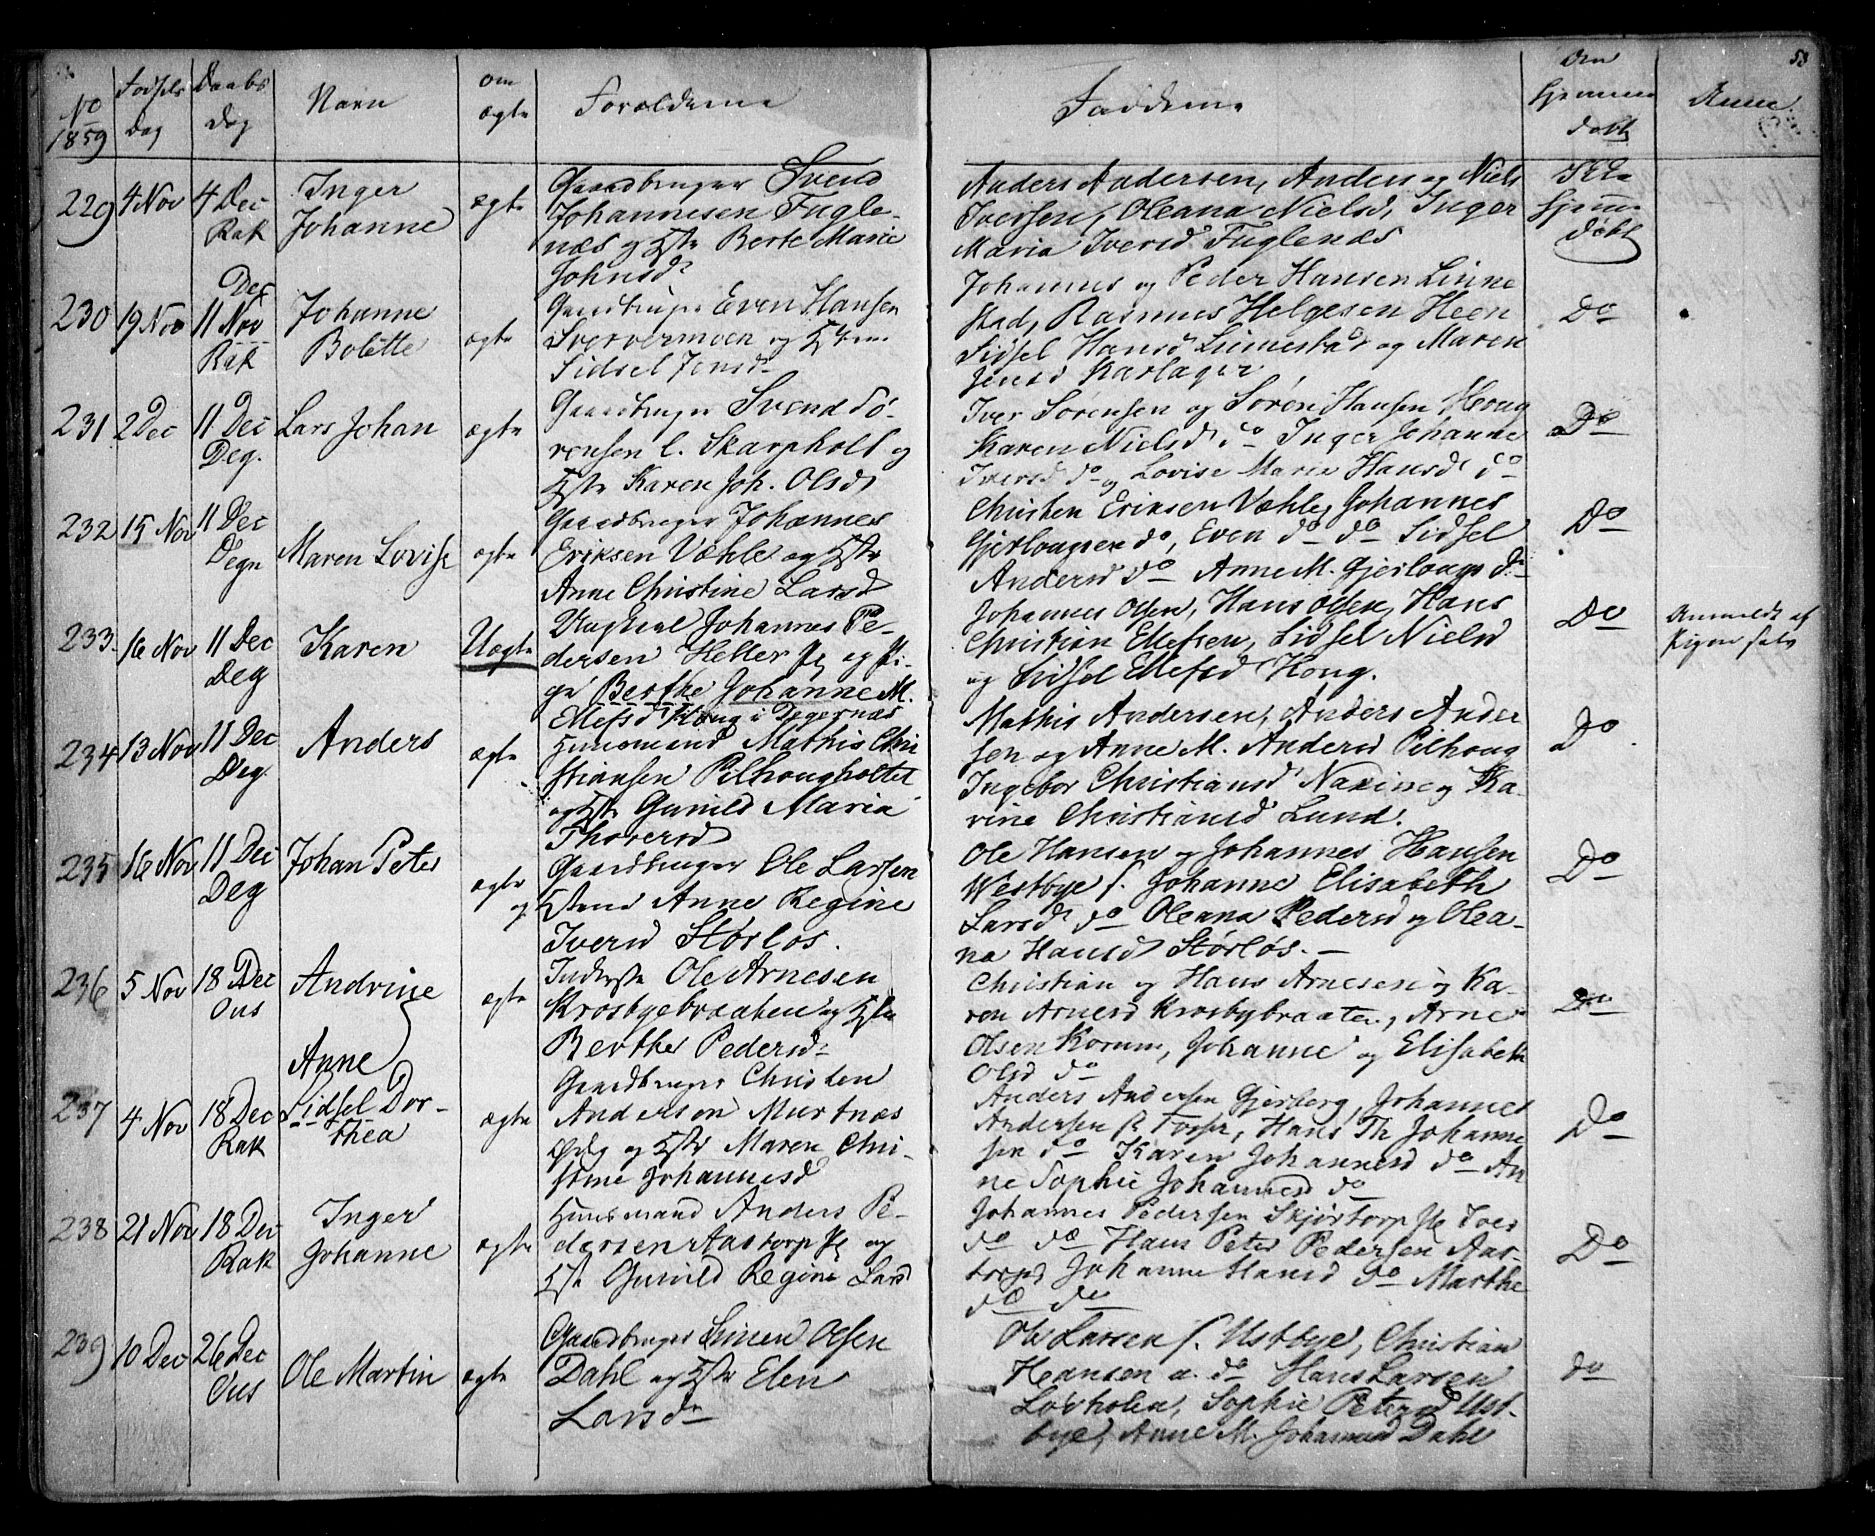 58
No
1859
Fødsels
dag
Daabs
Dag
Navn
om
ægte
Forældrene
Fadderne
Om
hjemme
døbt
Anm.
229
4 Nov
4 Dec
Rak
Inger
Johanne
ægte
Gaardbruger Svend
Johannesen Fugle-
næs og Hstr Berte Marie
Johnsd
Anders Andersen, Anders og Niels
Iversen, Oleana Nielsd, Inger
Maria Iversd Fuglenæs
Ikke
hjemme
døbt
230
19 Nov
Dec
11 Nov
Rak
Johanne
Bolette
ægte
Gaardbruger Even Hansen
og Hstru
Sidsel Jensd
Johannes og Peder Hansen Linne
stad, Rasmus Helgesen Heen
Sidsel Hansd Linnestad og Maren
Jensd Karlager
Do
231
2 Dec
11 Dec
Deg.
Lars Johan
ægte
Gaardbruger Svend Sø-
rensen l. Skarpholt og
Hstr Karen Joh. Olsd
Iver Sørensen og Søren Hansen Houg
Karen Nielsd do Inger Johanne
Iversd do og Lovise Marie Hansd do
Do
232
15 Nov
11 Dec
Degn
Maren Lovise
ægte
Gaardbruger Johannes
Eriksen Væhle og Hstr
Anne Christine Larsd
Christen Eriksen Væhle, Johannes
Gjerlougsen do, Even do do Sidsel
Andersd do Anne M. Gjerlougs do
Do
233
16 Nov
11 Dec
Deg
Karen
Uægte
Ungkarl Johannes Pe-
dersen Heller og Pi-
ge Berthe Johanne M.
Ellefsd Houg i Degernæs
Johannes Olsen, Hans Olsen, Hans
Christian Ellefsen, Sidsel Nielsd
og Sidsel Ellefsd Houg.
Do
Anmeldt af
Pigen selv
234
13 Nov
11 Dec
Deg.
Anders
ægte
Huusmand Mathis Chri
stiansen Pilhougholtet
og Hstr Gunild Maria
Thorersd
Mathis Andersen, Anders Ander
sen og Anne M. Andersd Pilhoug
Ingebor Christiansd Naxine og Ka-
rine Christiansd Lund.
Do
235
16 Nov
11 Dec
Deg
Johan Peter
ægte
Gaardbruger Ole Larsen
og Hstrue Anne Regine
Iversd Størlos.
Ole Hansen og Johannes Hansen
Westbye f. Johanne Elisabeth
Larsd do Oleana Pedersd og Olea-
na Hansd Størløs. -
Do
236
5 Nov
18 Dec
Ous
Andrine
ægte
Inderste Ole Arnesen
Krosbyebraaten og Hstr
Berthe Pedersd
Christian og Hans Arnesen og Ka-
ren Arnesd Krosbybraaten, Arne
Olsen Korum, Johanne og Elisabeth
Olsd do
Do
237
4 Nov
18 Dec
Rak
Anne
Sidsel Dor-
thea
ægte
Gaardbruger Christen
Andersen Murtnæs
Ødeg og Hstr Maren Chri-
stine Johannesd
Anders Andersen Gjerberg, Johannes
Andersen Fosser, Hans Th Johanne
sen do Karen Johannesd do An
ne Sophie Johannesd do
Do
238
21 Nov
18 Dec
Rak
Inger
Johanne
ægte
Huusmand Anders Pe-
dersen Aastorp og
Hstr Gunild Regine Larsd
Johannes Pedersen Skjørtorp Iver
do do Hans Peter Pedersen Aas-
torp Johanne Hansd do Marthe
do do
Do
239
10 Dec
26 Dec
Ous
Ole Martin
ægte
Gaardbruger Simen Olsen
Dahl og Hstr Elen
Larsd
Ole Larsen f. Ustbye, Christian
Hansen a. do Hans Larsen
Løvholen, Sophie Petersd Ust-
bye, Anne M. Johannesd Dahl
do